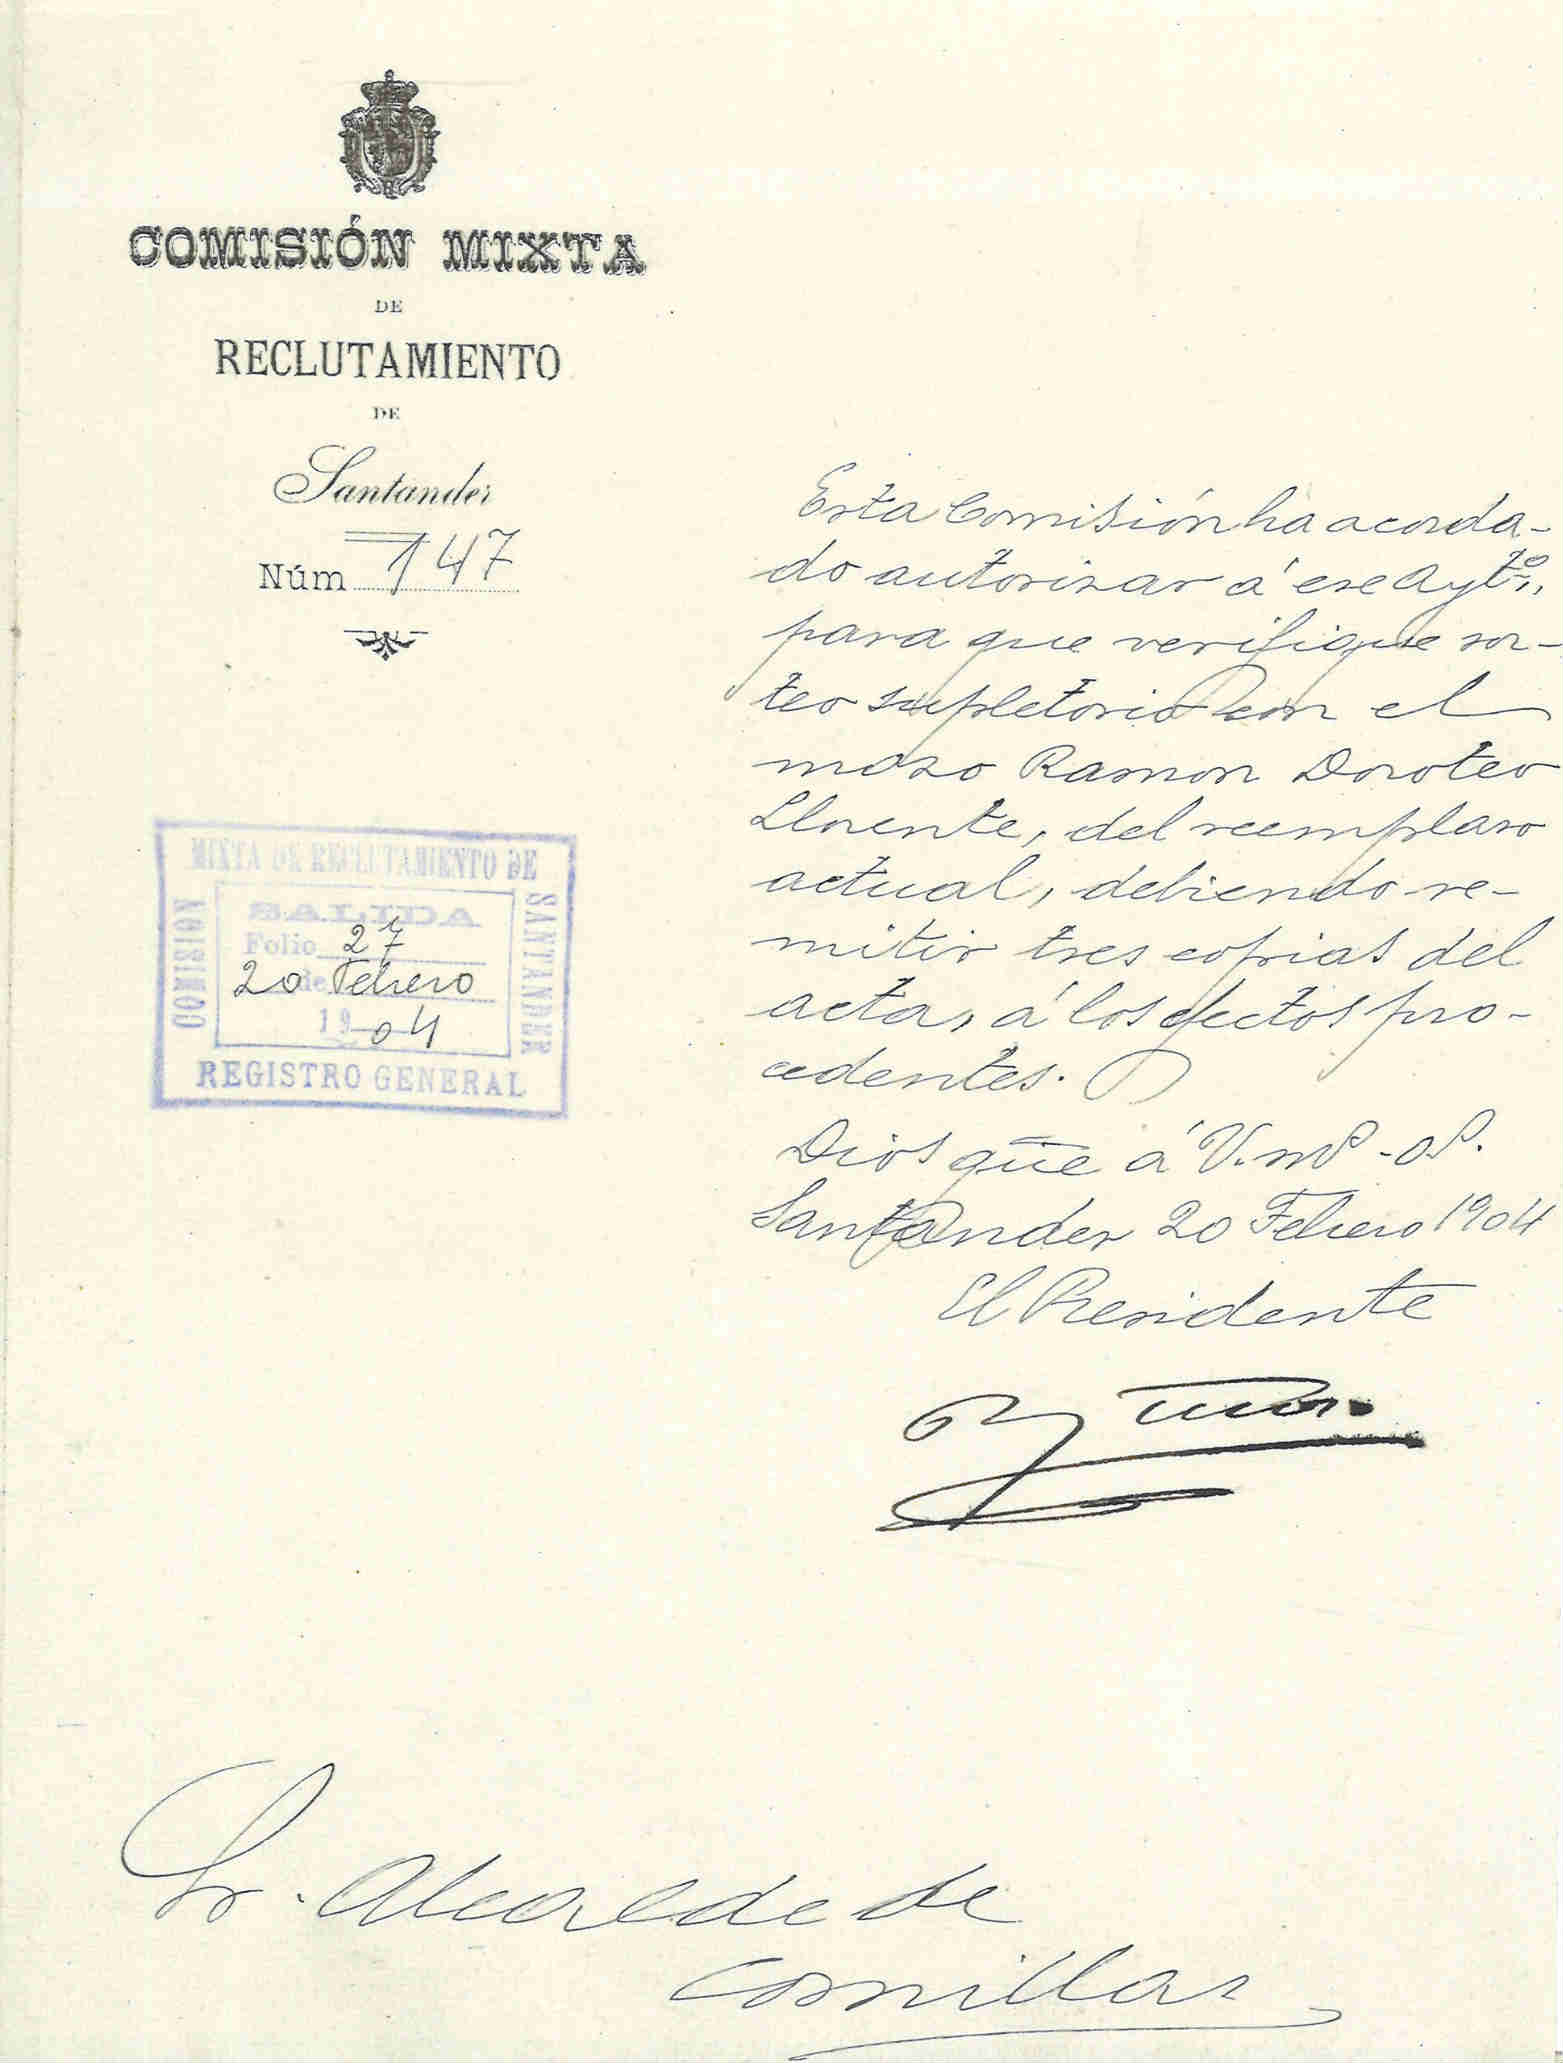 COMISIÓN MIXTA
DE
RECLUTAMIENTO
DE
Santander
Núm 147
MIXTA DE RECLUTAMIENTO DE
SANTANDER
COMISION
SALIDA
Folio 27
20 de Febrero
1904
REGISTRO GENERAL
Esta Comisión ha acorda-
do autorizar á ese Aytº,
para que verifique sor-
teo supletorio con el
mozo Ramon Doroteo
Llorente, del reemplazo
actual, debiendo re-
mitir tres copias del
acta, á los efectos pro-
cedentes.
Dios gue á V. ms. as.
Santander 20 Febrero 1904
El Presidente
Sr. Alcalde de
Comillas